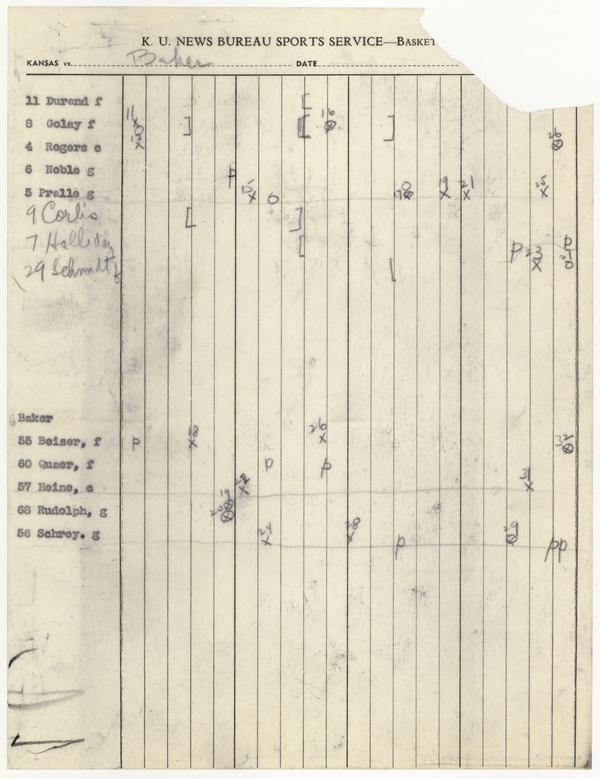 K. U. NEWS BUREAU SPORTS SERVICE—BASKET
KANSAS vs. Baker DATE
11 Durand f
8 Golay f 11 16
4 Rogers c 13 26
6 Noble g p
5 Pralle g 15 0 19 21 25
9 Corlis
7 Halliday p
29 Schmidt g p 23
Baker
55 Beiser, f p 18 26 32
60 Quaer, f p p
57 Heine, c 31
68 Rudolph, g
56 Schrey. g 28 p 29 pp